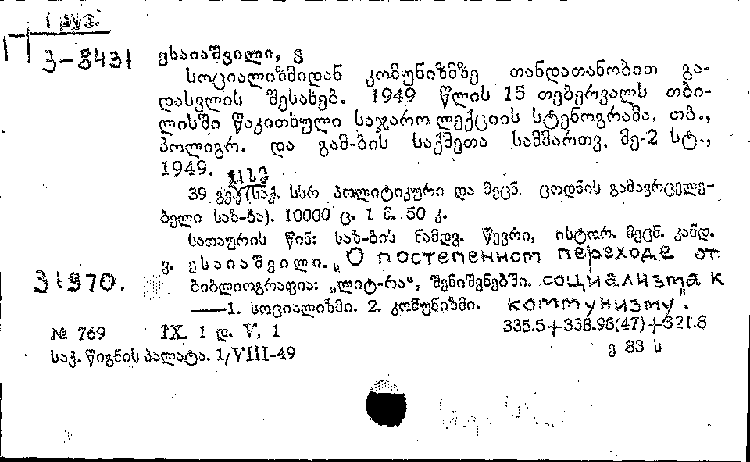 ესაიაშვილი, ვ
სოციალიზმიდან კომუნიზმზე თანდათანობით გა-
დასვლის შესახებ. 1949 წლის 15 თებერვალს თბი-
ლისში წაკითხული საჯარო ლექციის სტენოგრამა, თბ.,
პოლიგრ. და გამ-ბის საქმეთა სამმართვ. მე-2 სტ.,
1949.
39 გვ. (საქ. სსრ პოლიტიკური და მეცნ. ცოდნის გამავრცელე-
ბელი საზ-ბა). 10000 ც. 1 მ. 50 კ.
სათაურის წინ: საზ-ბის ნამდვ. წევრი, ისტორ. მეცნ. კანდ.
ვ. ესაიაშვილი. „О постепенном переходе от
31970. ბიბლიოგრაფია: „ლიტ-რა“, შენიშვნებში. социализма к
—1. სოციალიზმი. 2. კომუნიზმი. коммунизму".
№ 769 IX. 1 დ. V. 1 335.5+338.98(47)+321.6
საქ. წიგნის პალატა. 1/VIII-49 ე 83 ს